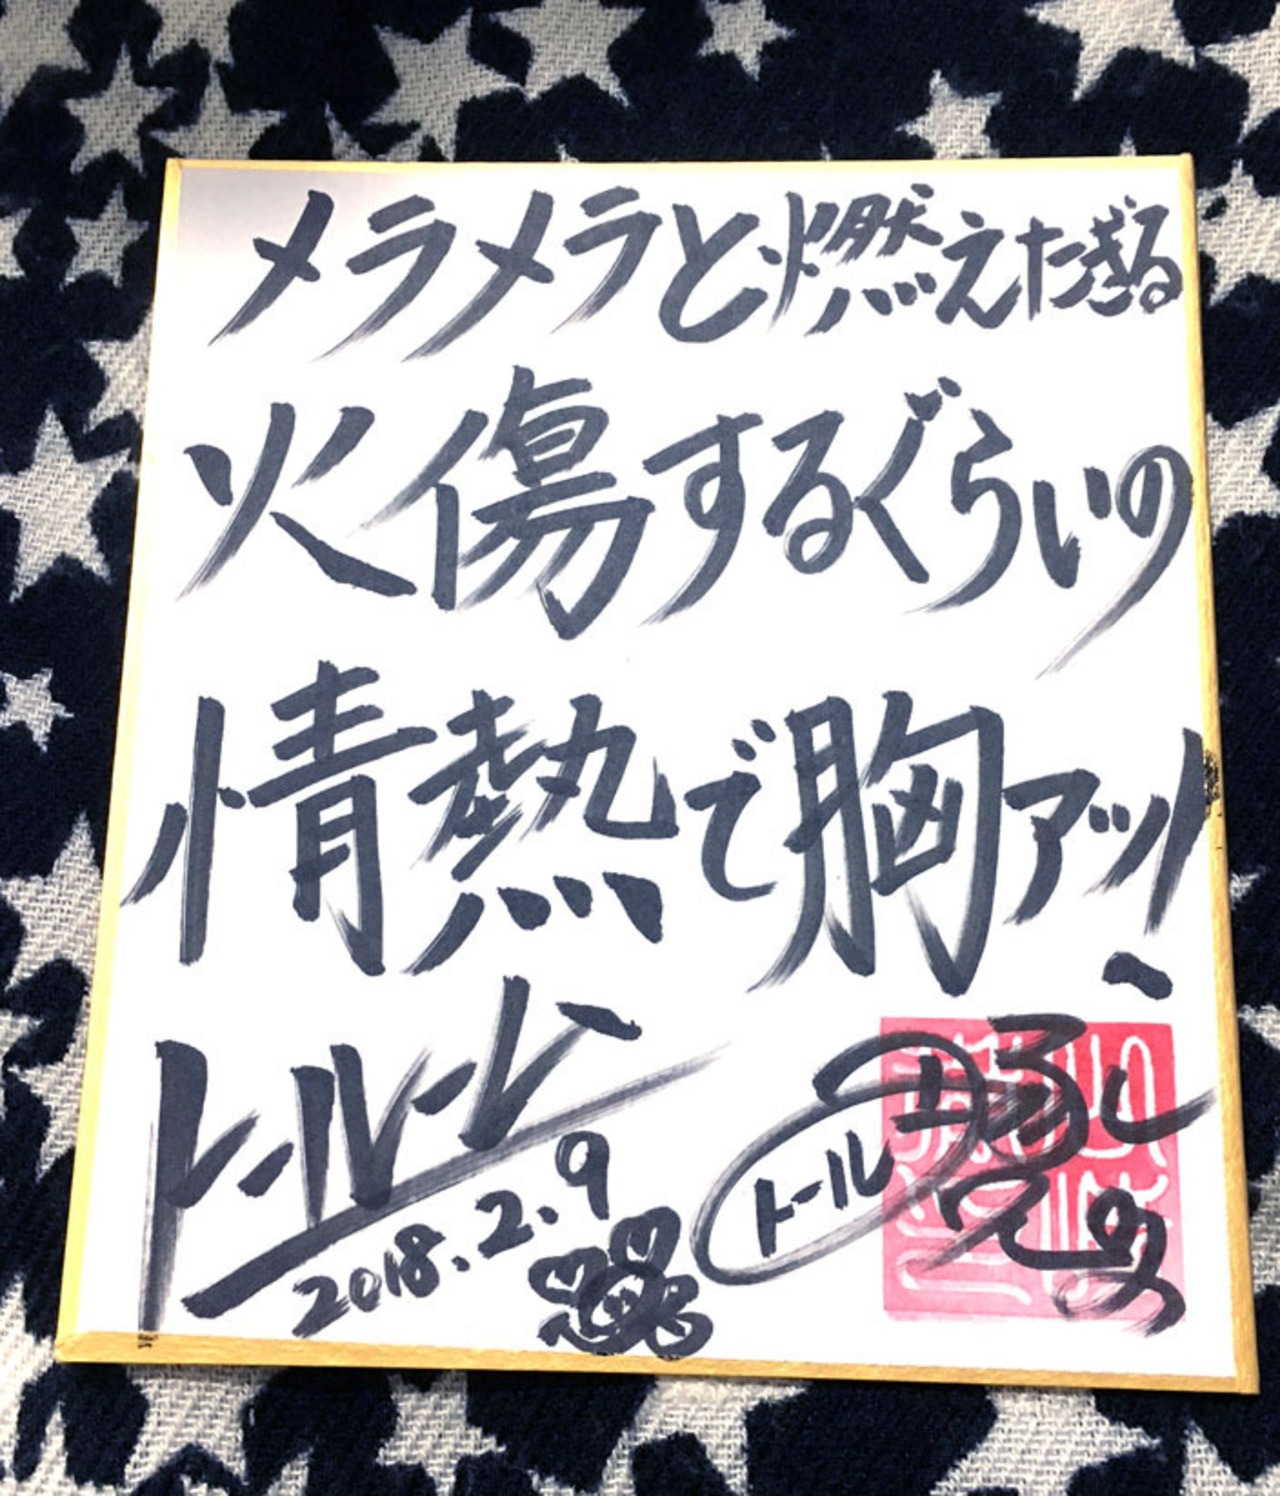 メラメラと燃えたぎる
火傷するぐらいの
情熱で胸アッ!
トールさん
2018.2.9
トール